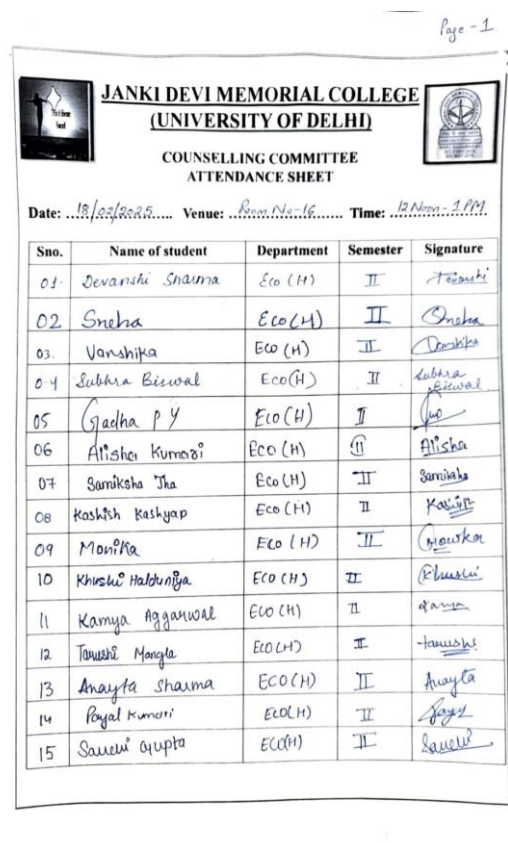 Page - 1
JANKI DEVI MEMORIAL COLLEGE
(UNIVERSITY OF DELHI)
COUNSELLING COMMITTEE
ATTENDANCE SHEET
Date: 18/02/2025 Venue: Room No-16 Time: 12 Noon - 1 PM
Sno. Name of student Department Semester Signature
01. Devanshi Sharma Eco (H) II Devanshi
02 Sneha Eco (H) II Sneha
03. Vanshika Eco (H) II Vanshika
04 Subhra Biswal Eco(H) II Subhra Biswal
05 Gadha P Y Eco (H) II
06 Alisha Kumari Eco (H) II Alisha
07 Samiksha Jha Eco (H) II Samiksha
08 Kashish Kashyap Eco (H) II Kashish
09 Monika Eco (H) II Monika
10 Khushi Halduniya ECO (H) II Khushi
11 Kamya Aggarwal ECO (H) II Kamya
12 Tanushi Mangla ECO (H) II
13 Anayta Sharma ECO (H) II Anayta
14 Payal Kumari ECO(H) II
15 Sanevi Gupta ECO(H) II Sanevi